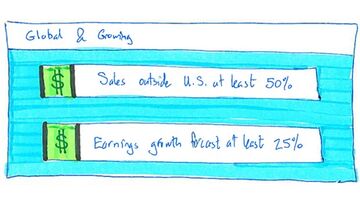 Global & Growing
$ Sales outside U.S. at least 50%
$ Earnings growth forcast at least 25%